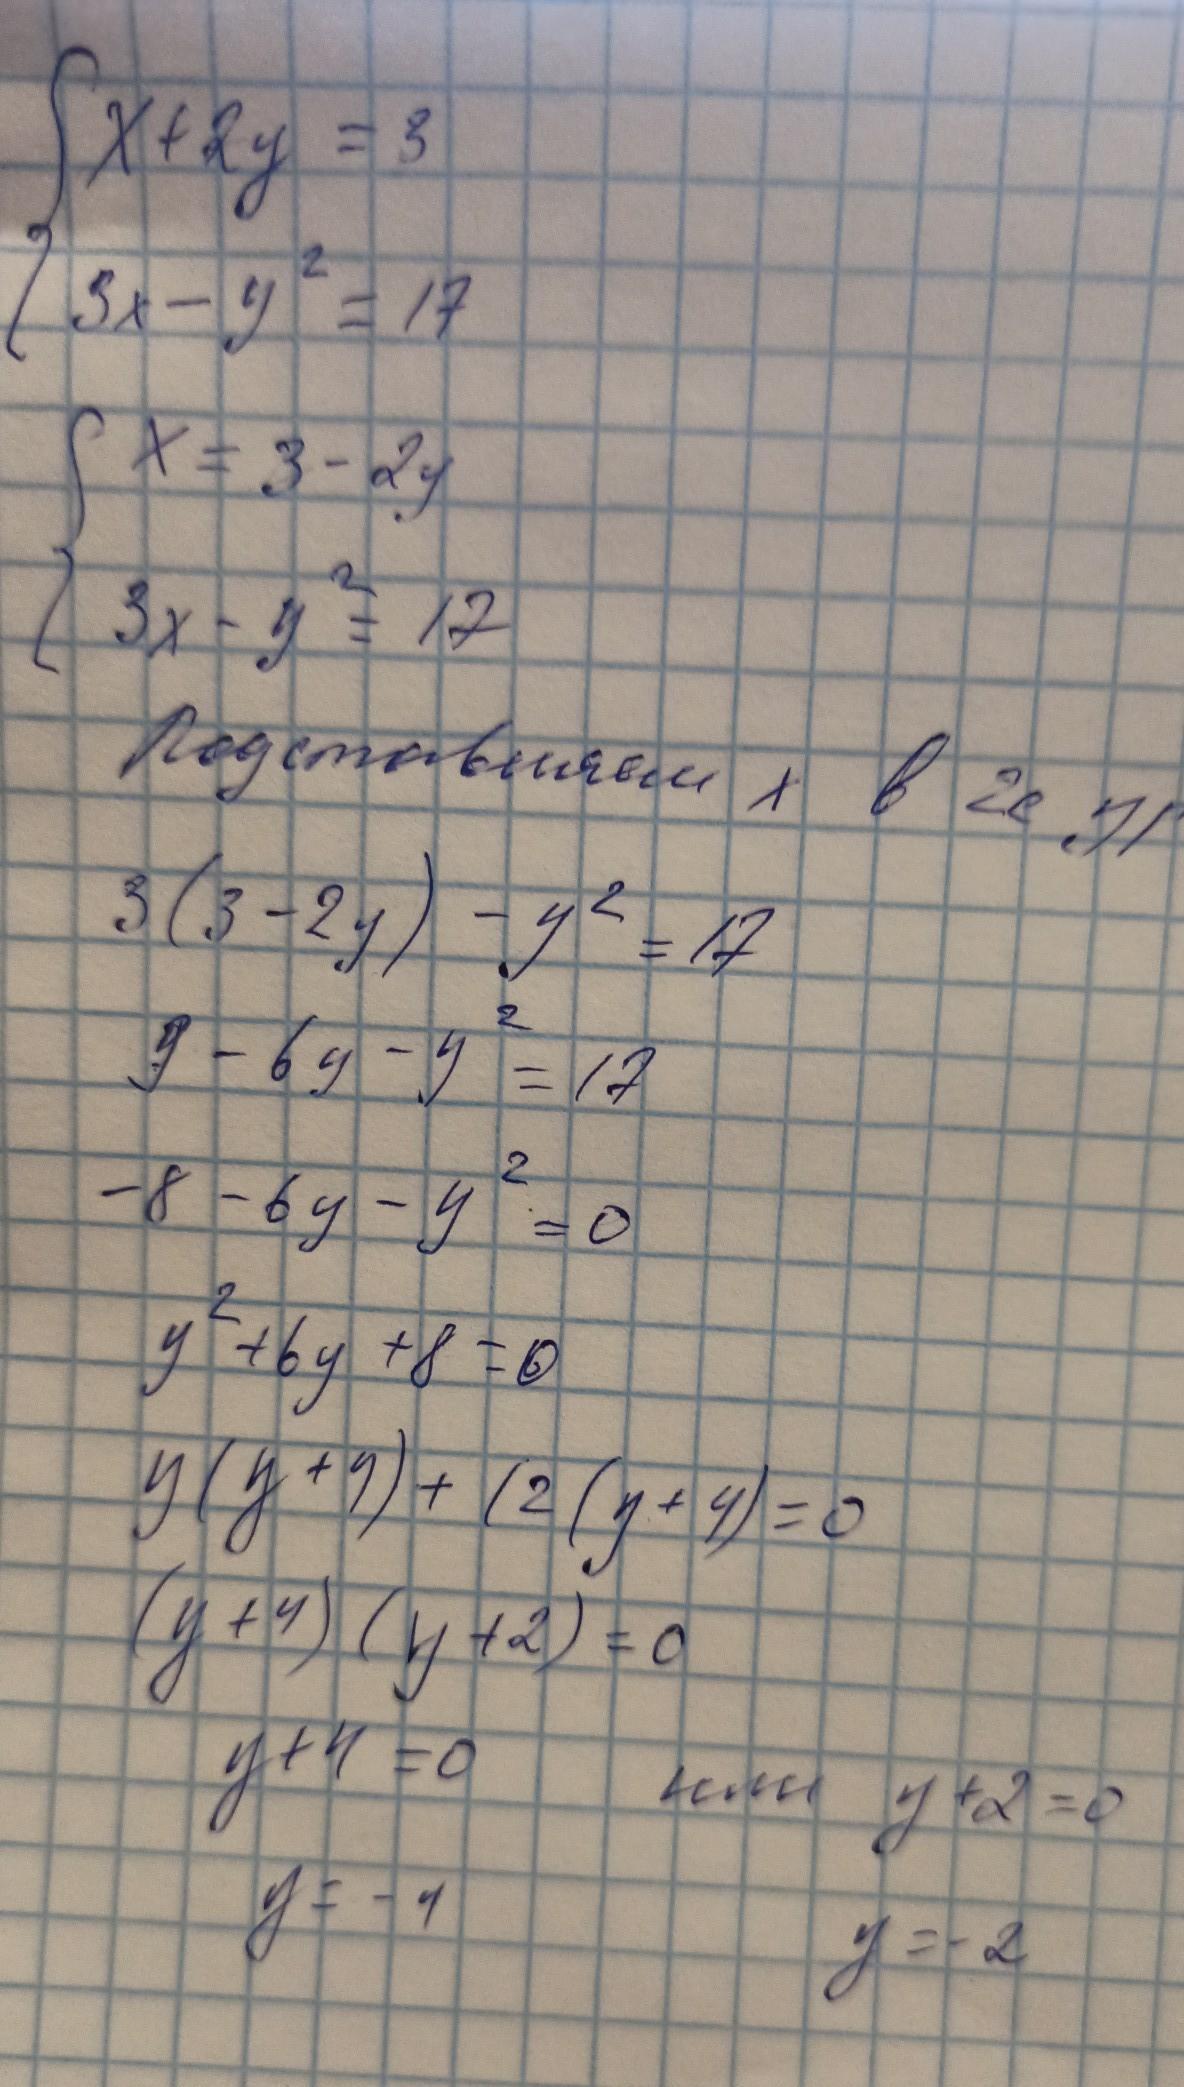 x + 2y = 3
3x - y² = 17
x = 3 - 2y
3x - y² = 17
Подставляем x в 2е ур
3(3 - 2y) - y² = 17
9 - 6y - y² = 17
-8 - 6y - y² = 0
y² + 6y + 8 = 0
y(y + 4) + (2(y + 4) = 0
(y + 4)(y + 2) = 0
y + 4 = 0 или y + 2 = 0
y = -4 y = -2